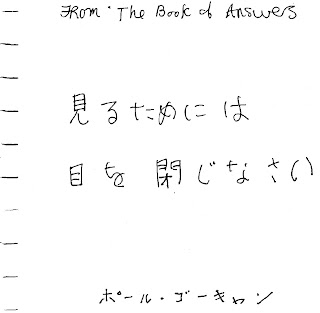 From・The Book of Answers
見るためには
目を閉じなさい
ポール・ゴーギャン